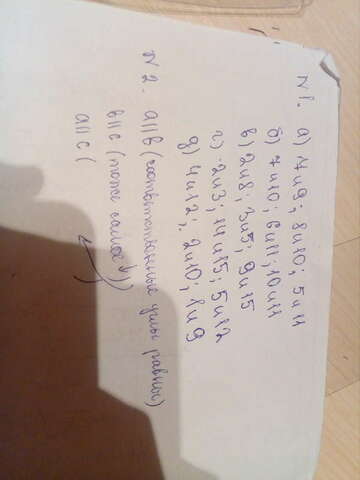 №1. а) 7 и 9; 8 и 10; 5 и 11
б) 7 и 10; 6 и 11; 10 и 11
в) 2 и 8; 3 и 5; 9 и 15
г) 2 и 3; 14 и 15; 5 и 12
д) 4 и 12; 2 и 10; 1 и 9
№2. a||b (соответственные углы равны)
b||c (тоже самое↓)
a||c (